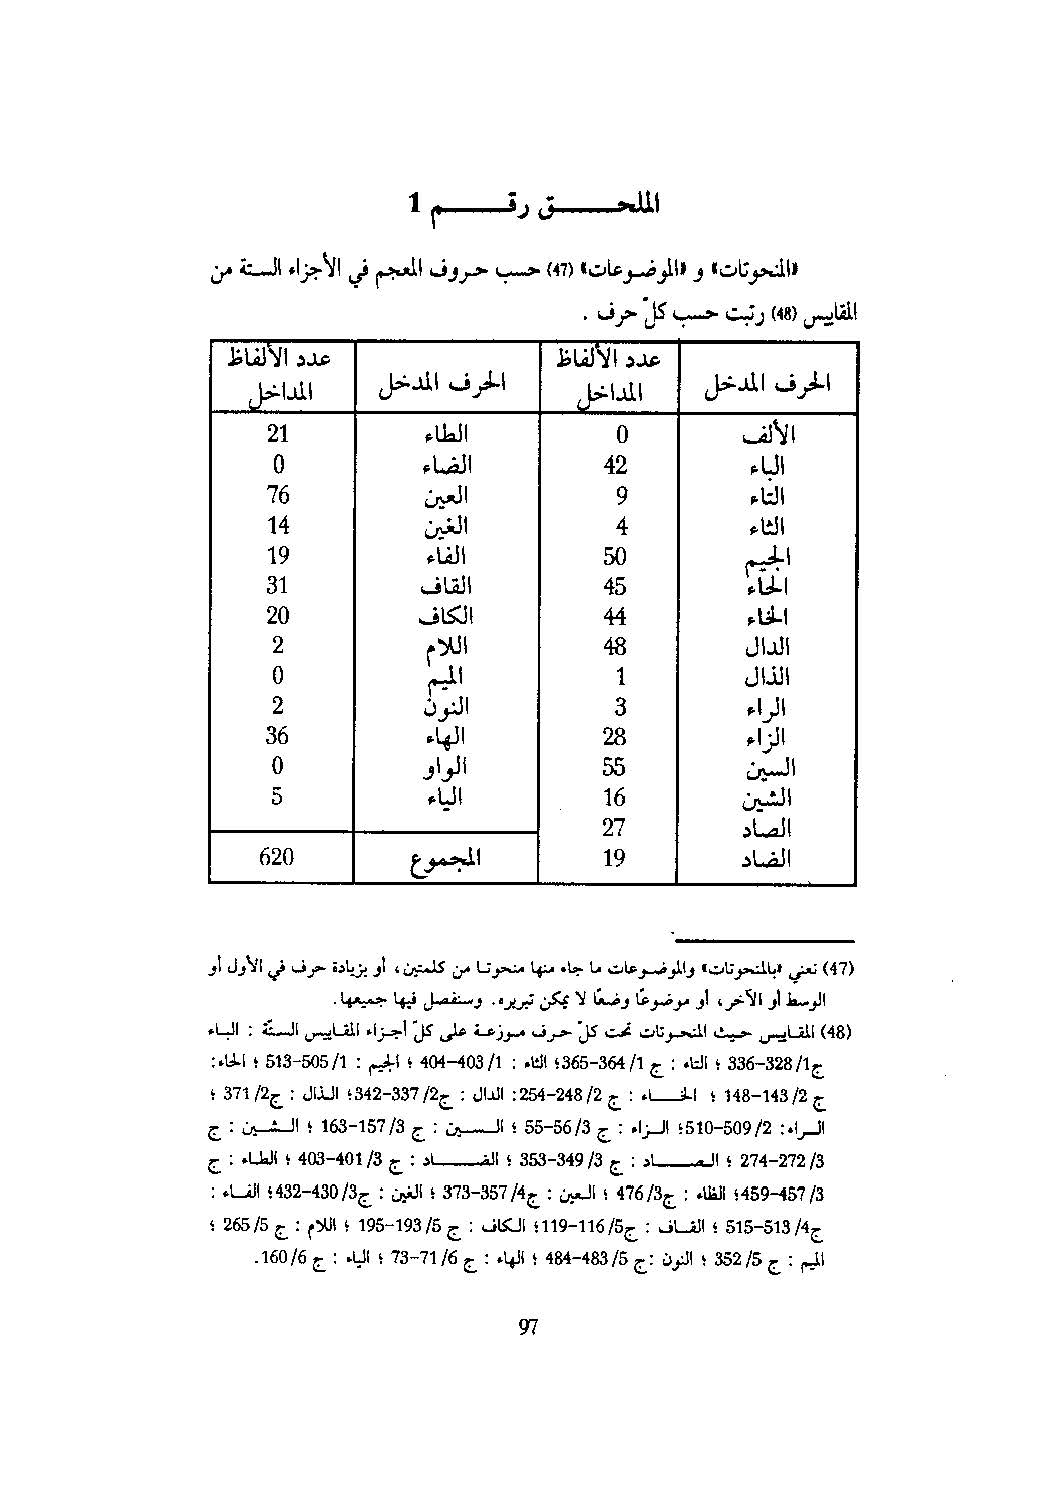 الملحق رقم 1
«المنحوتات» و «الموضوعات» (47) حسب حروف المعجم في الأجزاء الستة من
المقاييس (48) رتبت حسب كلّ حرف .
الحرف المدخل | عدد الألفاظ المداخل | الحرف المدخل | عدد الألفاظ المداخل
الألف | 0 | الطاء | 21
الباء | 42 | الضاء | 0
التاء | 9 | العين | 76
الثاء | 4 | الغين | 14
الجيم | 50 | الفاء | 19
الحاء | 45 | القاف | 31
الخاء | 44 | الكاف | 20
الدال | 48 | اللام | 2
الذال | 1 | الميم | 0
الراء | 3 | النون | 2
الزاء | 28 | الهاء | 36
السين | 55 | الواو | 0
الشين | 16 | الياء | 5
الصاد | 27
الضاد | 19 | المجموع | 620
(47) نعني «بالمنحوتات» والموضوعات ما جاء منها منحوتا من كلمتين، أو بزيادة حرف في الأول أو
الوسط أو الآخر، أو موضوعاً وضعاً لا يمكن تبريره. وسنفصل فيها جميعها.
(48) المقاييس حيث المنحوتات تحت كلّ حرف موزعة على كلّ أجزاء المقاييس الستّة : الباء
ج1/328-336 ؛ التاء : ج 1/364-365؛ الثاء : 1/403-404 ؛ الجيم : 1/505-513 ؛ الحاء:
ج 2/143-148 ؛ الخاء : ج 2/248-254: الدال : ج2/337-342؛ الذال : ج2/ 371 ؛
الراء: 2/509-510؛ الزاء : ج 3/56-55 ؛ السين : ج 3/157-163 ؛ الشين : ج
3/272-274 ؛ الصاد : ج 3/349-353 ؛ الضاد : ج 3/401-403 ؛ الطاء : ج
3/457-459؛ الظاء : ج3/476 ؛ العين : ج4/357-373 ؛ الغين : ج3/430-432؛ الفاء :
ج4/513-515 ؛ القاف : ج5/116-119؛ الكاف : ج 5/193-195 ؛ اللام : ج 5/265 ؛
الميم : ج 5/352 ؛ النون :ج 5/483-484 ؛ الهاء : ج 6/71-73 ؛ الياء : ج 6/160.
97